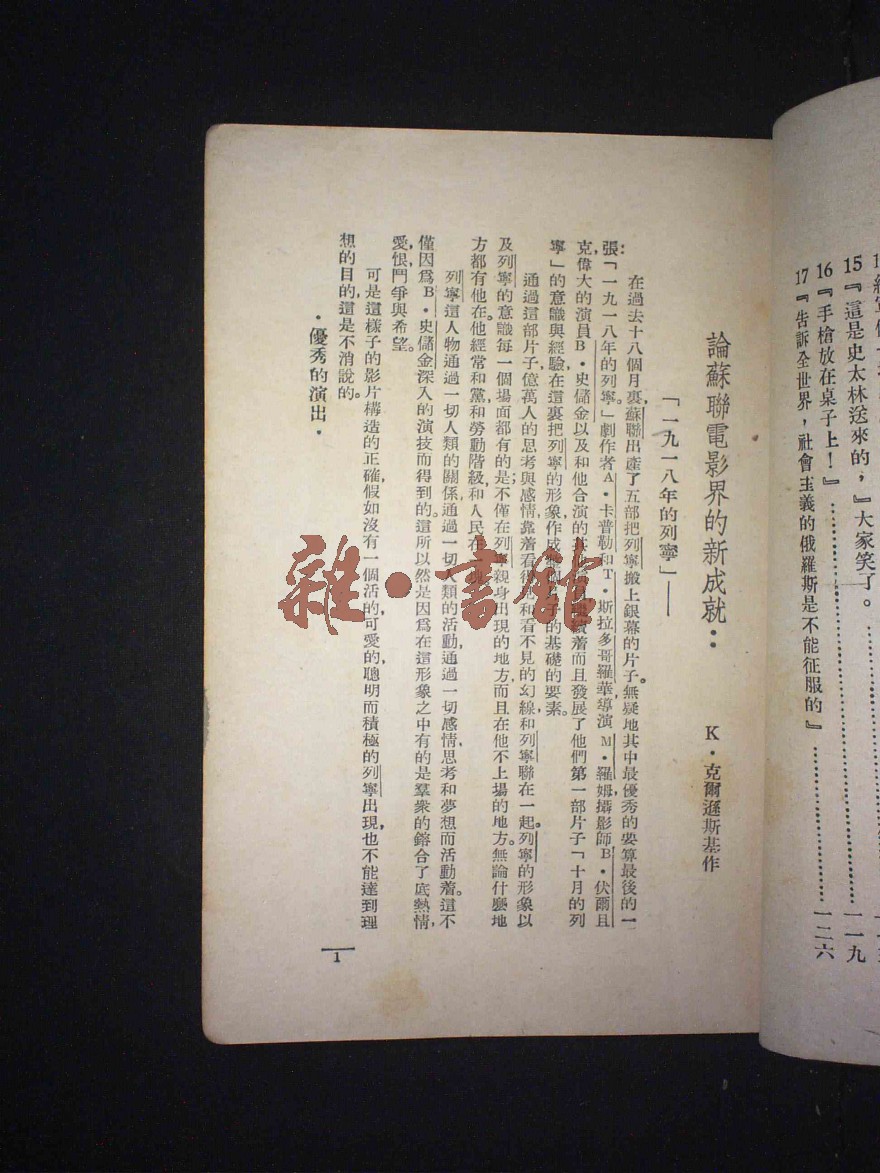 15『這是史太林送來的，』大家笑了。⋯⋯⋯⋯一一九
16『手槍放在桌子上！』⋯⋯⋯⋯一二六
17『告訴全世界，社會主義的俄羅斯是不能征服的』⋯⋯⋯⋯
論蘇聯電影界的新成就：
K·克爾遜斯基作
「一九一八年的列寧」——
在過去十八個月裏，蘇聯出產了五部把列寧搬上銀幕的片子。無疑地其中最優秀的要算最後的一
張：「一九一八年的列寧。」劇作者A·卡普勒和T·斯拉多哥羅華，導演M·羅姆，攝影師B·伏爾且
克，偉大的演員B·史儲金以及和他合演的着而且發展了他們第一部片子「十月的列
寧」的意識與經驗，在這裏把列寧的形象作成的基礎的要素。
通過這部片子，億萬人的思考與感情，靠着看和看不見的幻線和列寧聯在一起。列寧的形象以
及列寧的意識每一個場面都有的是；不僅在列寧親身出現的地方，而且在他不上場的地方。無論什麼地
方都有他在，他經常和黨和勞動階級，和人民在
列寧這人物通過一切人類的關係，通過一切人類的活動，通過一切感情，思考和夢想而活動着。這不
僅因爲B·史儲金深入的演技而得到的，這所以然是因爲在這形象之中有的是羣衆的鎔合了底熱情，
愛，恨，鬥爭與希望。
可是這樣子的影片構造的正確，假如沒有一個活的，可愛的，聰明而積極的列寧出現，也不能達到理
想的目的，這是不消說的。
·優秀的演出·
1
雜·書館